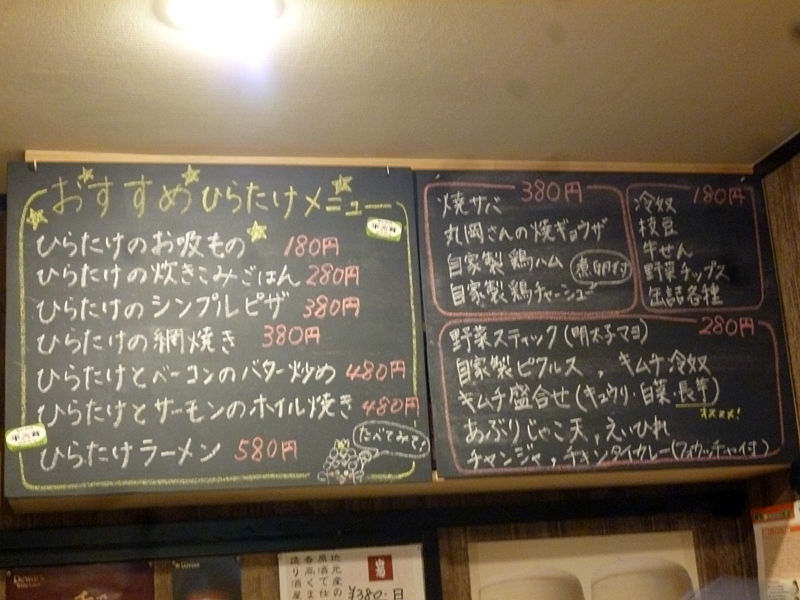 おすすめひらたけメニュー
ひらたけのお吸もの 180円
ひらたけの炊きこみごはん 280円
ひらたけのシンプルピザ 380円
ひらたけの網焼き 380円
ひらたけとベーコンのバター炒め 480円
ひらたけとサーモンのホイル焼き 480円
ひらたけラーメン 580円
たべてみて!
380円
焼サバ
丸岡さんの焼ギョウザ
自家製 鶏ハム
煮卵付
自家製 鶏チャーシュー
180円
冷奴
枝豆
牛せん
野菜チップス
缶詰各種
280円
野菜スティック(明太子マヨ)
自家製ピクルス、キムチ冷奴
キムチ盛合せ(キュウリ・白菜・長芋)
オススメ!
あぶりじゃこ天、えいひれ
チャンジャ、チキンタイカレー
¥380-